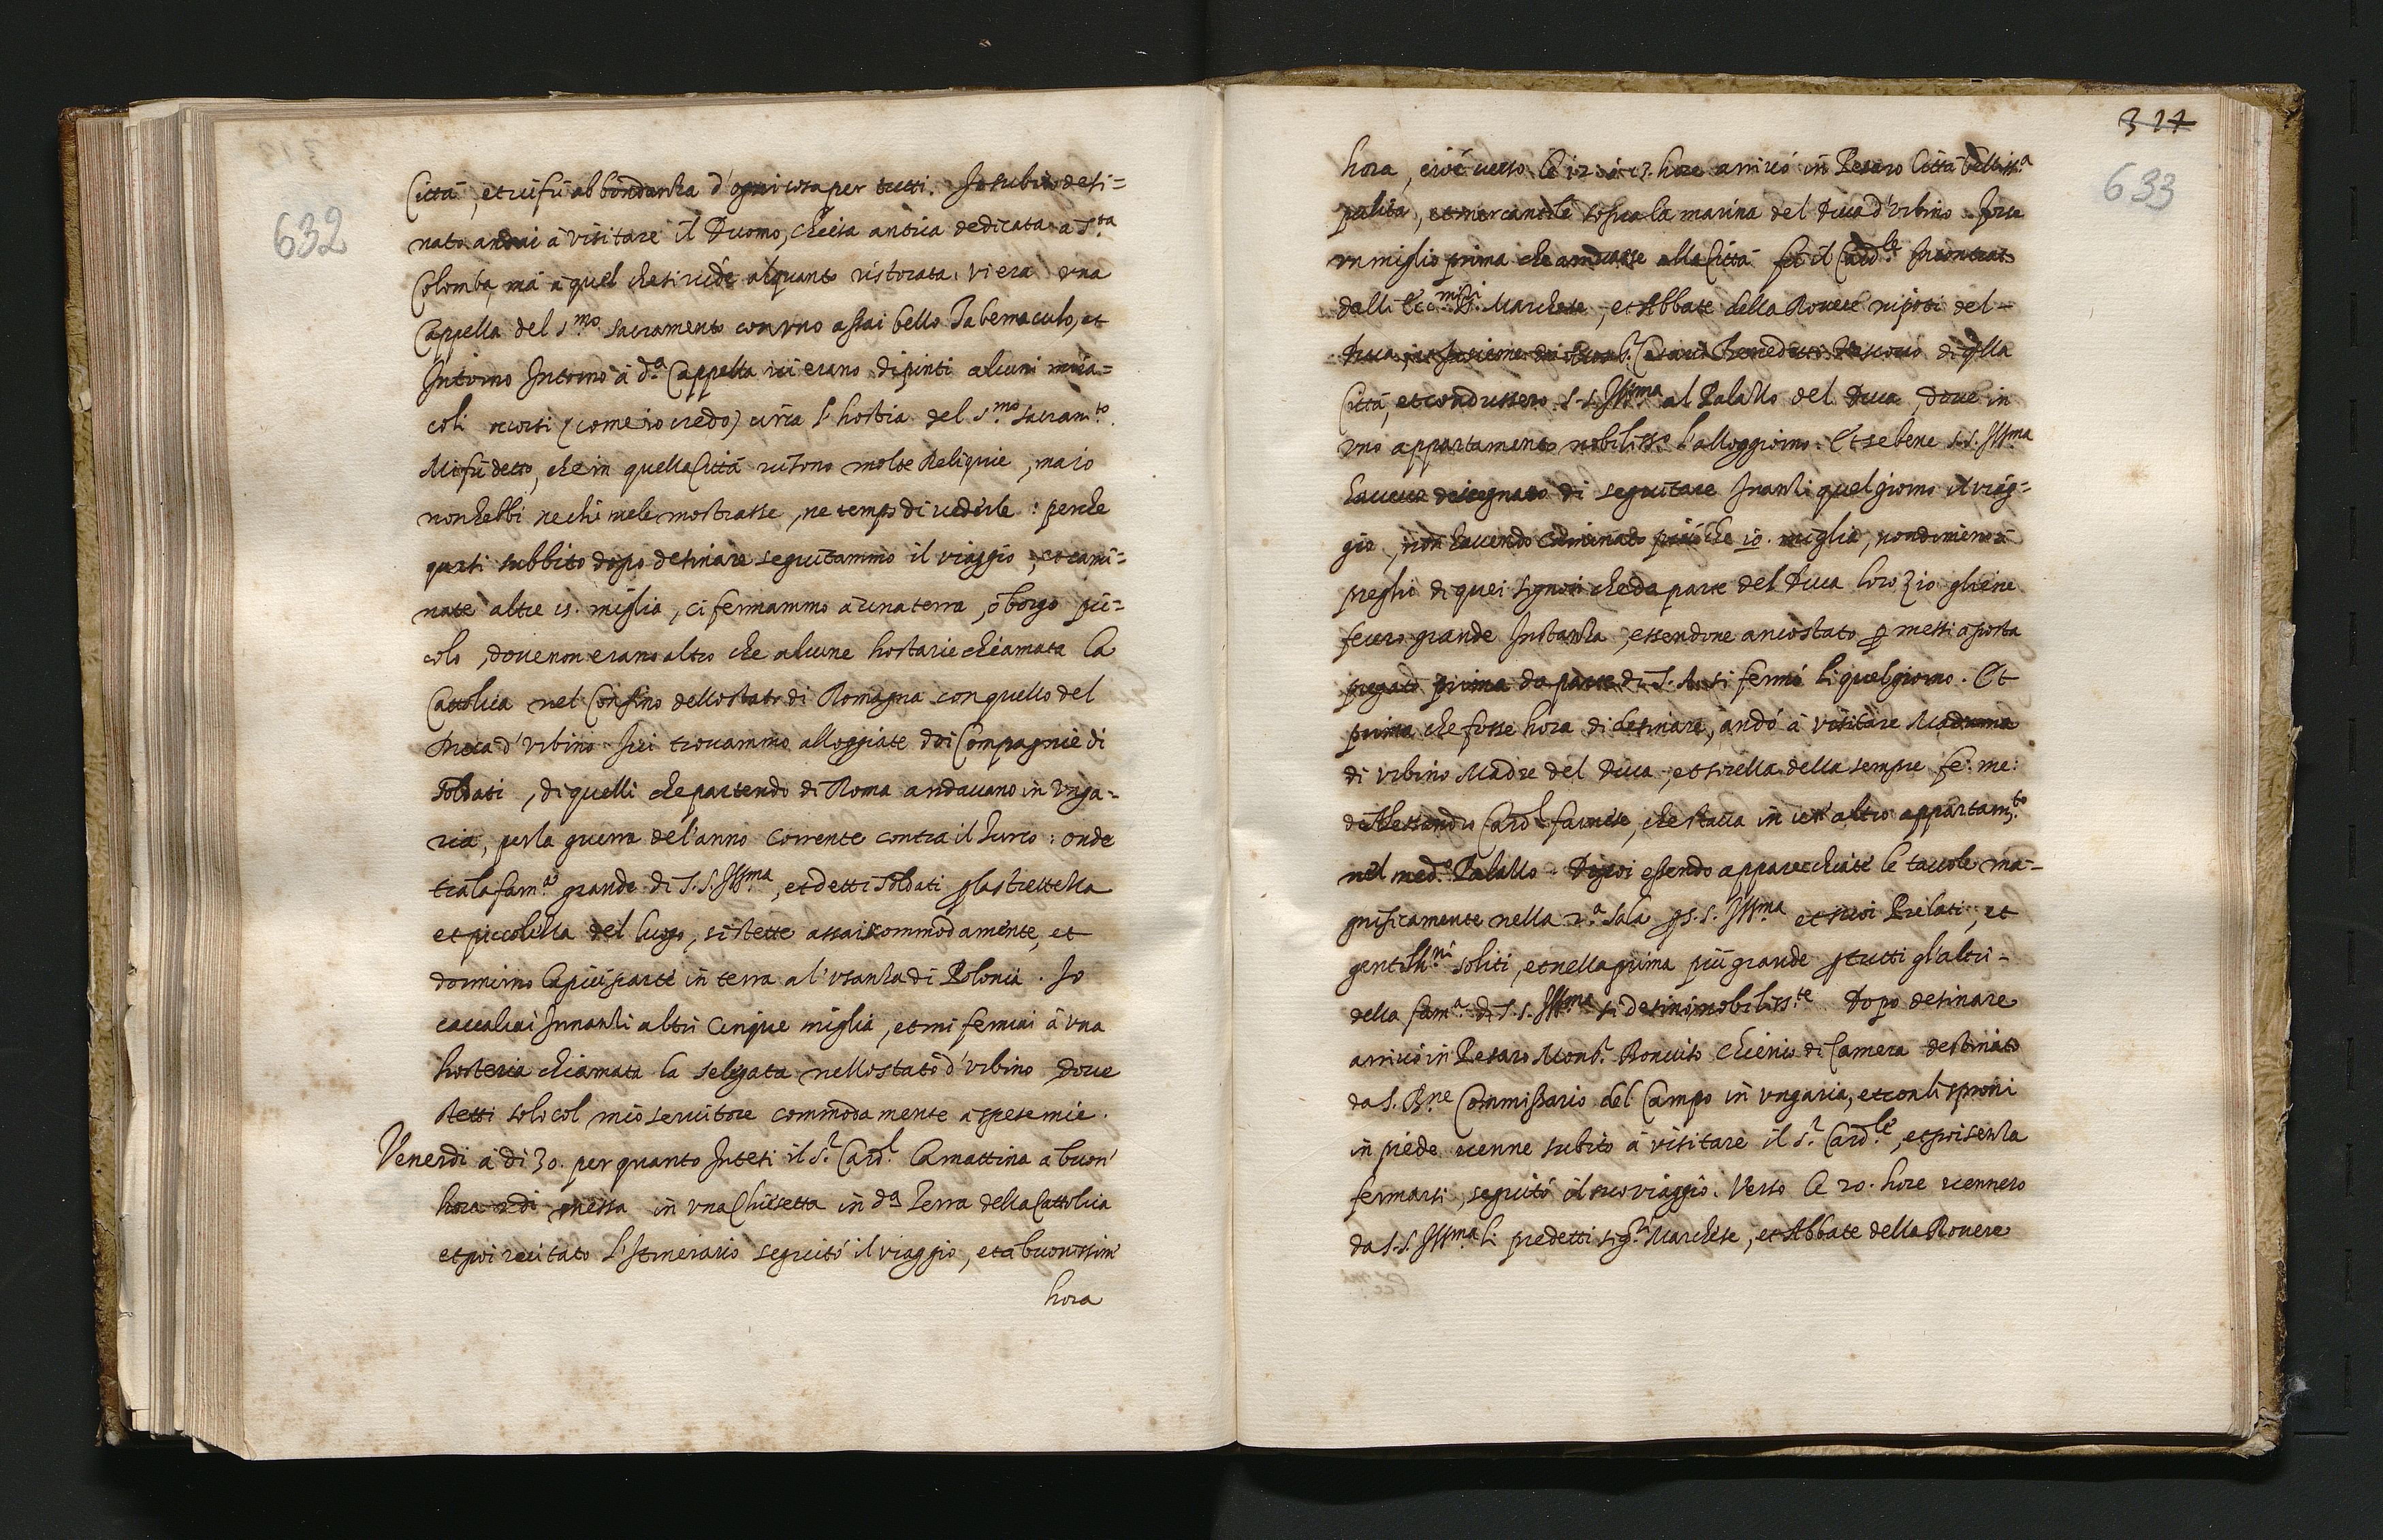 632
Città, et vi fù abbondanza d'ogni cosa per tutti. Io subito desi=
nato andai à visitare il Duomo, chiesa antica dedicata a S.ta
Colomba, mà à quel che si vede alquanto ristorata. vi era una
Cappella del S.mo sacramento con uno assai bello Tabernaculo, et
Intorno Intorno à d.a Cappella vi erano dipinti alcuni mira=
coli occorsi (come io credo) circa l'hostia del S.mo sacram.to.
Mi fù detto, che in quella Città vi sono molte Reliquie, ma io
non hebbi ne chi me le mostrasse, ne tempo di vederle: perche
quasi subbito dopo desinare seguitammo il viaggio, et cami=
nate altre 15. miglia, ci fermammo à una terra, ò borgo pic=
colo, dove non erano altro che alcune hostarie chiamata la
Cattolica nel Confino dello stato di Romagna con quello del
Duca d'Urbino. Ivi trovammo alloggiate doi Compagnie di
soldati, di quelli che partendo di Roma andavano in Unga=
ria, per la guerra del'anno corrente contra il Turco: onde
tra la fam.a grande di S.S. Ill.ma, et detti soldati p la strettezza
et piccolezza del luogo, si stette assai scommodamente, et
dormirno la più parte in terra al'usanza di Polonia. Io
cavalcai Innanzi altri cinque miglia, et mi fermai à una
hosteria chiamata la seligata nello stato d'Urbino dove
stetti solo col mio servitore commodamente à spese mie.
Venerdi à di 30. per quanto Intesi il S.r Card.l la mattina a buon'
hora udì messa in una Chiesetta in d.a Terra della Cattolica
et poi recitato l'Itinerario seguitò il viaggio, et à buonissim'
hora
317
633
hora, cioè verso le 12. in 13. hore arrivò in Pesaro Città belliss.a
pulita, et mercantile sopra la marina del Duca d'Urbino. Forse
un miglio prima che andasse alla Città fù il Card.le Incontrato
dalli Ecc.mi SS.ri Marchese, et Abbate della Rovere nipoti del=
Duca, Cesare Benedetti Vescovo di qlla
Città, et condussero S.S. Ill.ma al Palazzo del Duca, dove in
uno appartamento nobiliss.o l'alloggiorno. Et se bene S.S. Ill.ma
haveva disegnato di seguitare Inanzi quel giorno il viag=
gio, non havendo caminato più che 10. miglia, nondimeno à
preghi di quei signori che da parte del Duca loro Zio gliene
fecero grande Instanza, essendone anco stato p messi à posta
pregato prima da parte di S. A. si fermò lì quel giorno. Et
prima che fosse hora di desinare, andò à visitare Madama
di Urbino Madre del Duca, et sorella della sempre fe: me:
di Alessandro Card.l farnese, che stava in un altro appartam.to
nel med.o Palazzo. Dipoi essendo apparecchiate le tavole ma=
gnificamente nella 2.a sala p S.S. Ill.ma et suoi Prelati, et
gentilh.ni soliti, et nella prima più grande p tutti gl'altri=
della fam.a di S.S. Ill.ma si desinò nobiliss.te Dopo desinare
arrivò in Pesaro Mons.r Bonvito Chierico di Camera destinato
da S. B.ne Commissario del Campo in Ungaria, et con li sproni
in piede venne subito à visitare il S.r Card.le, et poi senza
fermarsi, seguitò il suo viaggio. Verso le 20. hore vennero
da S.S. Ill.ma li predetti sig.ri Marchese, et Abbate della Rovere